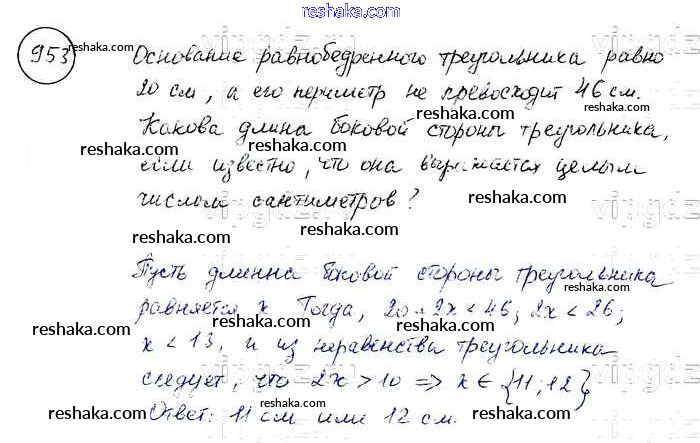 reshaka.com
953 reshaka.com
Основание равнобедренного треугольника равно
20 см, а его периметр не превосходит 46 см.
Какова длина боковой стороны треугольника,
reshaka.com reshaka.com
если известно, что она выражается целым
числом сантиметров?
reshaka.com
reshaka.com reshaka.com
Пусть длинна боковой стороны треугольника
reshaka.com reshaka.com
равняется x Тогда, 20 + 2x < 46; 2x < 26;
reshaka.com reshaka.com
x < 13, и из неравенства треугольника
reshaka.com
следует, что 2x > 10 => x ∈ {11; 12}
reshaka.com reshaka.com
Ответ: 11 см или 12 см.
reshaka.com